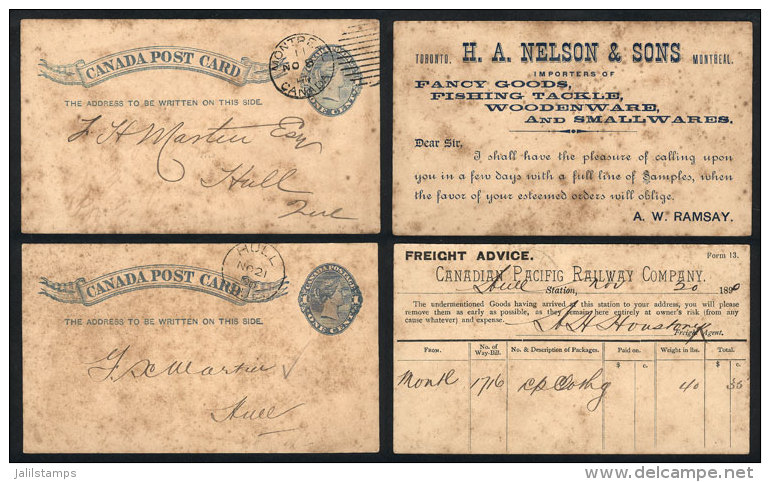 CANADA POST CARD
MONTREAL
11
NO 6
CANADA
ONE CENT
THE ADDRESS TO BE WRITTEN ON THIS SIDE.
F H Martin Esq
Hull
Que
TORONTO. H. A. NELSON & SONS MONTREAL.
IMPORTERS OF
FANCY GOODS,
FISHING TACKLE,
WOODENWARE,
AND SMALLWARES.
Dear Sir,
I shall have the pleasure of calling upon
you in a few days with a full line of Samples, when
the favor of your esteemed orders will oblige.
A. W. RAMSAY.
HULL
NO 21
90
CANADA POST CARD
CANADA POSTAGE
ONE CENT
THE ADDRESS TO BE WRITTEN ON THIS SIDE.
Martin
Hull
FREIGHT ADVICE. Form 13.
CANADIAN PACIFIC RAILWAY COMPANY.
Hull Station, Nov 20 1890
The undermentioned Goods having arrived at this station to your address, you will please
remove them as early as possible, as they remain here entirely at owner's risk (from any
cause whatever) and expense.
Freight Agent.
FROM. No. of Way-Bill. No. & Description of Packages. Paid on. Weight in lbs. Total.
$ c. $ c.
Montl 1716 40 35
jalilstamps
delcampe.net